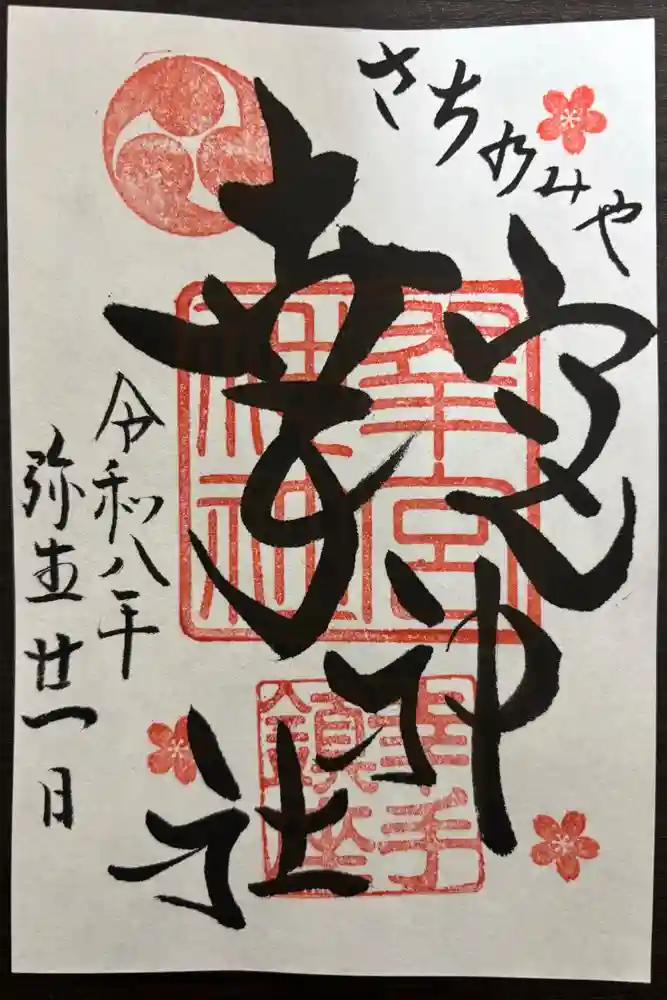 さちのみや
幸宮神社
幸宮
神社
幸手
鎮座
令和八年
弥生廿一日